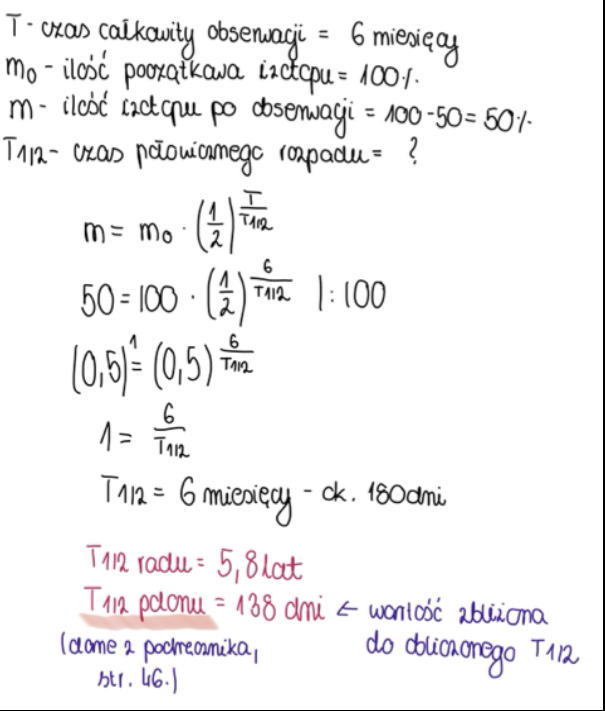 T - czas całkowity obserwacji = 6 miesięcy
m₀ - ilość początkowa izotopu = 100%
m - ilość izotopu po obserwacji = 100-50 = 50%
T1/2 - czas połowicznego rozpadu = ?
m = m₀ · (1/2)^(T/T1/2)
50 = 100 · (1/2)^(6/T1/2) |:100
(0,5)^1 = (0,5)^(6/T1/2)
1 = 6/T1/2
T1/2 = 6 miesięcy - ok. 180dni
T1/2 radu = 5,8 lat
T1/2 polonu = 138 dni ← wartość zbliżona
do obliczonego T1/2
(dane z podręcznika,
str. 46.)